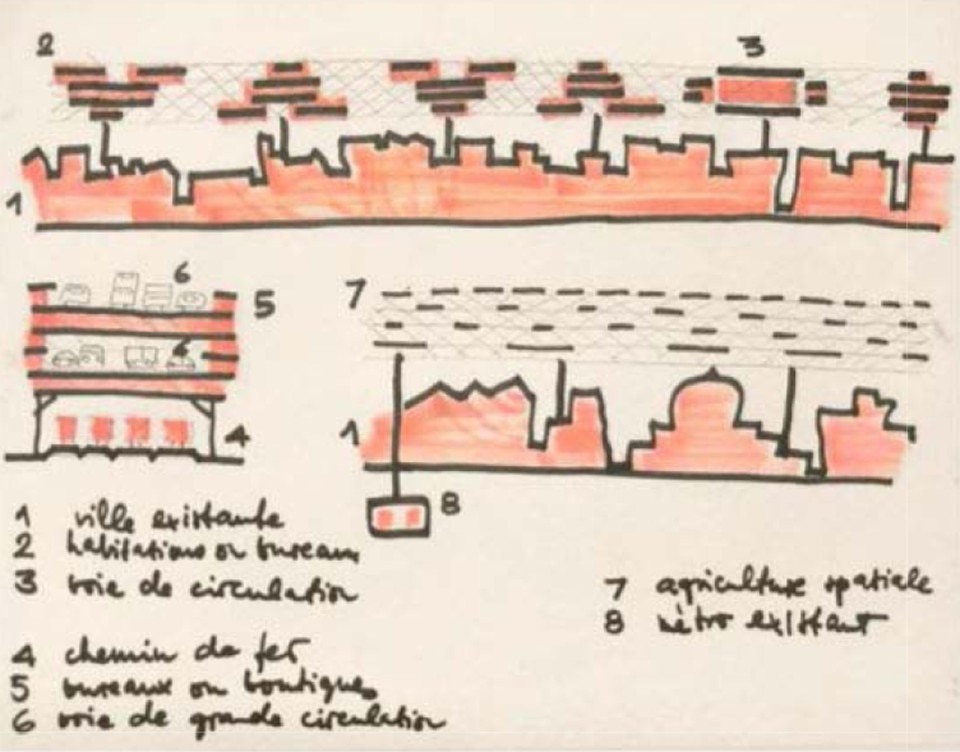 2
3
1
6
5
6
4
7
1
8
1 ville existante
2 habitations ou bureaux
3 voie de circulation
4 chemin de fer
5 bureaux ou boutiques
6 voie de grande circulation
7 agriculture spatiale
8 mètro existant